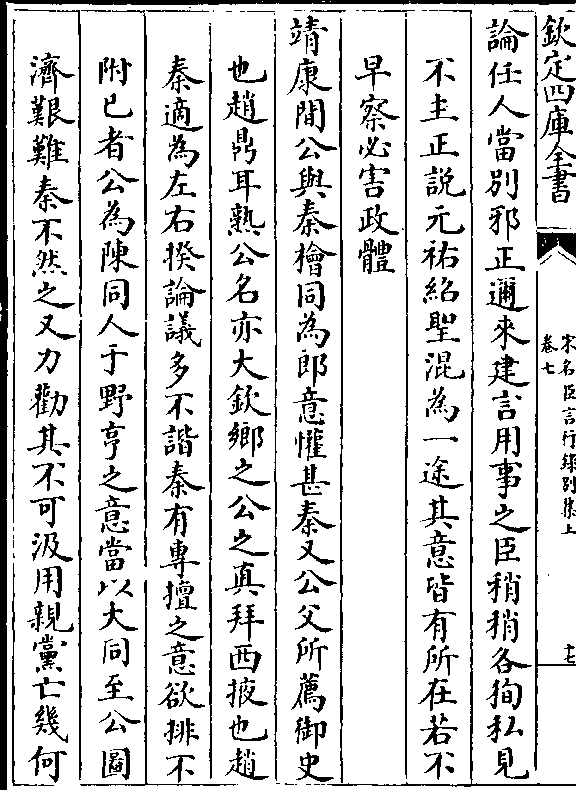 欽定四庫全書
宋名臣言行錄別集上
卷七
十七
論任人當別邪正邇來建言用事之臣稍稍各徇私見
不主正說元祐紹聖混為一途其意皆有所在若不
早察必害政體
靖康間公與秦檜同為郎意懽甚秦又公父所薦御史
也趙鼎耳熟公名亦大欽鄉之公之真拜西掖也趙
秦適為左右揆論議多不諧秦有專擅之意欲排不
附已者公為陳同人于野亨之意當以大同至公圖
濟艱難秦不然之又力勸其不可汲用親黨亡幾何